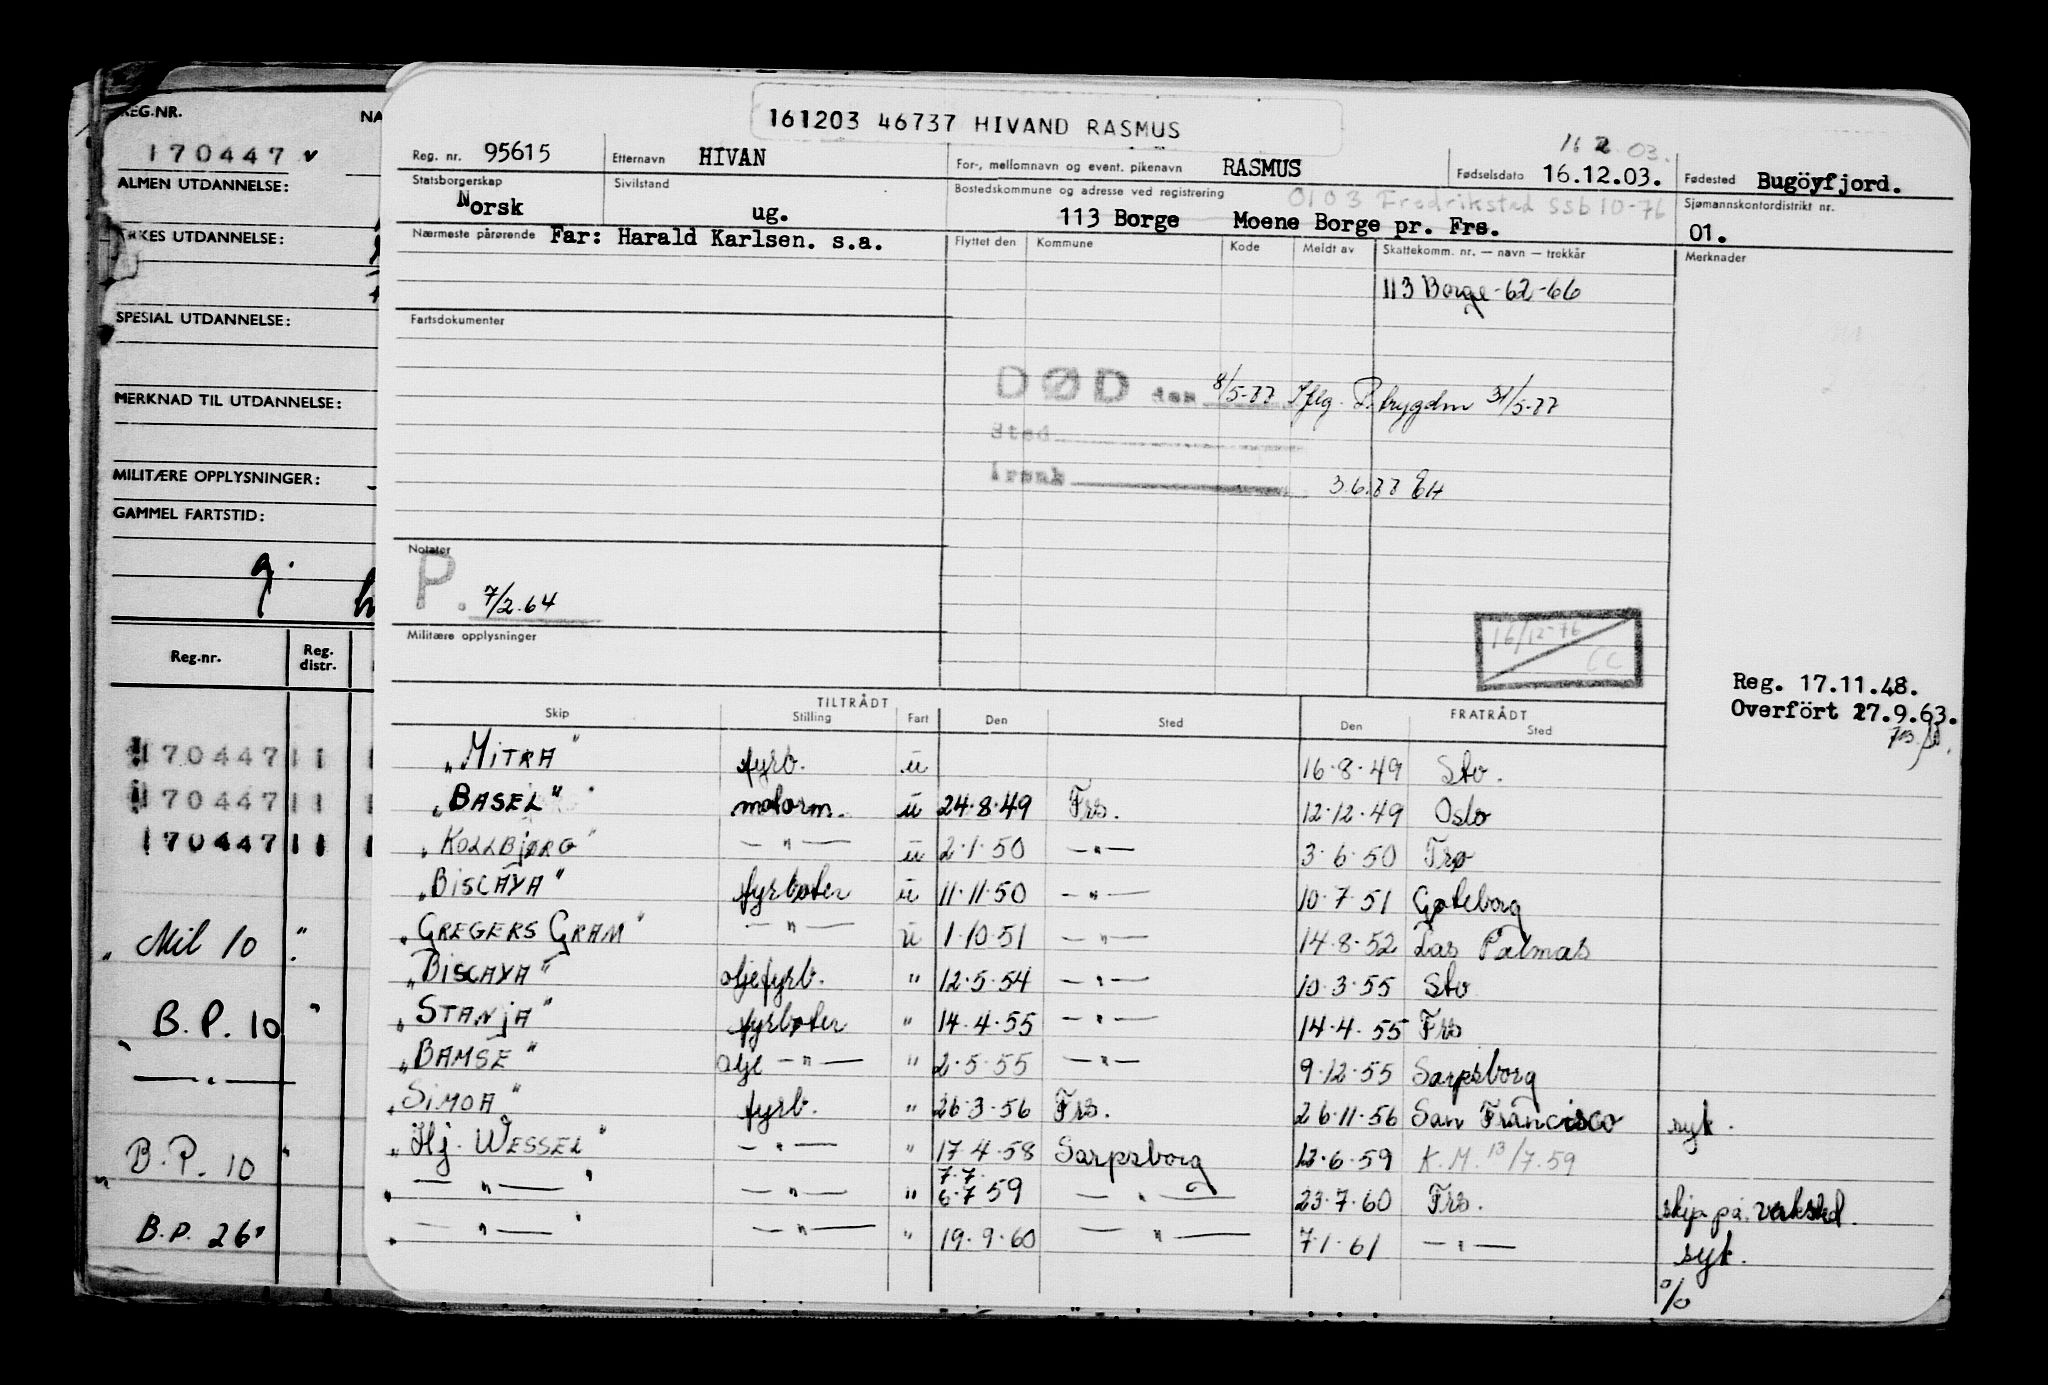 REG.NR. NA
170447 v
ALMEN UTDANNELSE:
YRKES UTDANNELSE:
SPESIAL UTDANNELSE:
MERKNAD TIL UTDANNELSE:
MILITÆRE OPPLYSNINGER:
GAMMEL FARTSTID:
Reg.nr. Reg. distr.
170447 11
170447 11
170447 11
" Mil 10 "
B.P. 10 "
— " —
B.P. 10 "
B.P. 26"
161203 46737 HIVAND RASMUS
Reg. nr. 95615 Etternavn HIVAN For-, mellomnavn og event. pikenavn RASMUS Fødselsdato 16.12.03. Fødested Bugöyfjord.
Statsborgerskap Norsk Sivilstand ug. Bostedskommune og adresse ved registrering 0103 Fredrikstad SSB 10-76
113 Borge Moene Borge pr. Frs. Sjømannskontordistrikt nr. 01.
Nærmeste pårørende Far: Harald Karlsen. s.a. Flyttet den Kommune Kode Meldt av Skattekomm. nr. — navn — trekkår Merknader
113 Borge -62-66
Fartsdokumenter
DØD den 8/5-77 Iflg. P. trygdm 31/5-77
Sted
Årsak 3.6.77 EH
Notater
P. 7/2.64
16/12-76
CC
Militære opplysninger
Reg. 17.11.48.
Overfört 27.9.63.
TILTRÅDT FRATRÅDT
Skip Stilling Fart Den Sted Den Sted
"MITRA" fyrb. u 16.8.49 Sto.
"BASEL" motorm. u 24.8.49 Frs. 12.12.49 Oslo
"KOLLBJØRG" — " — u 2.1.50 — " — 3.6.50
"BISCAYA" fyrbøter u 11.11.50 — " — 10.7.51 Gøteborg
"GREGERS GRAM" — " — u 1.10.51 — " — 14.8.52 Las Palmas
"BISCAYA" oljefyrb. " 12.5.54 — " — 10.3.55 Sto
"STANJA" fyrbøter " 14.4.55 — " — 14.4.55 Frs
"BAMSE" olje — " — " 2.5.55 — " — 9.12.55 Sarpsborg
"SIMOA" fyrb. " 26.3.56 Frs. 26.11.56 San Francisco syk.
"Hj. WESSEL" — " — " 17.4.58 Sarpsborg 13.6.59 K.M. 13/7.59
" — " — " — " — " 7.7. 6.7 59 — " — 23.7.60 Frs. skip på verksted.
" — " — " — " — " 19.9.60 — " — 7.1.61 — " — syk.
%